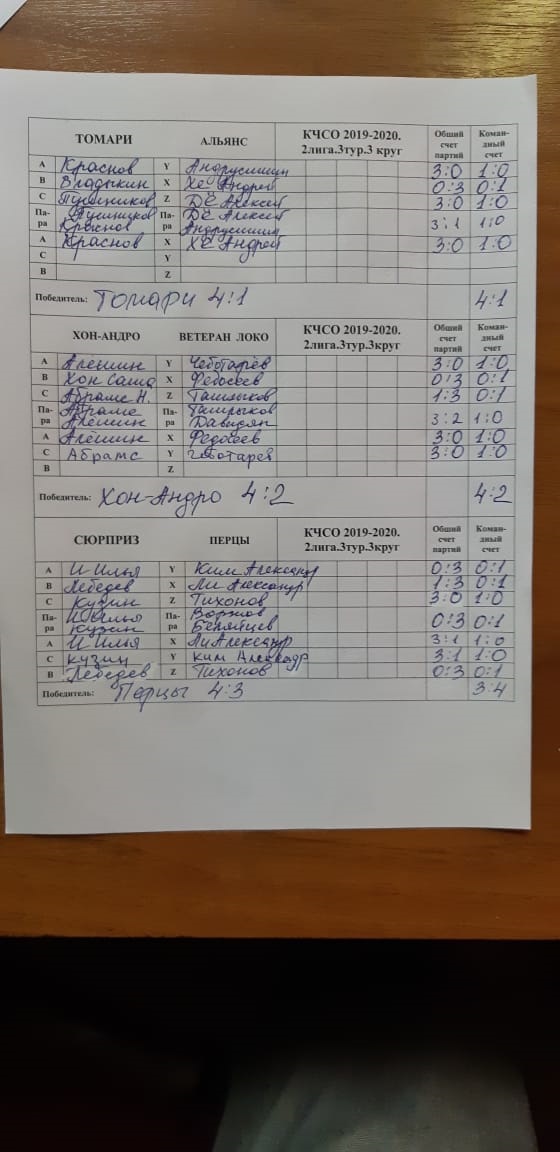 ТОМАРИ АЛЬЯНС КЧСО 2019-2020. 2лига.3тур.3 круг Общий счет партий Коман-дный счет
А Краснов Y Андрусишин 3:0 1:0
В Владыкин X Хё Андрей 0:3 0:1
С Пушников Z Дё Алексей 3:0 1:0
Па-ра Пушников Краснов Па-ра Дё Алексей Андрусишин 3:1 1:0
А Краснов X Хё Андрей 3:0 1:0
С Y
В Z
Победитель: Томари 4:1 4:1
ХОН-АНДРО ВЕТЕРАН ЛОКО КЧСО 2019-2020. 2лига.3тур.3круг Общий счет партий Коман-дный счет
А Алёшин Y Чеботарёв 3:0 1:0
В Хон Саша X Федосеев 0:3 0:1
С Абрамс Н. Z 1:3 0:1
Па-ра Абрамс Алёшин Па-ра Давидян 3:2 1:0
А Алёшин X Федосеев 3:0 1:0
С Абрамс Y Чеботарёв 3:0 1:0
В Z
Победитель: Хон-Андро 4:2 4:2
СЮРПРИЗ ПЕРЦЫ КЧСО 2019-2020. 2лига.3тур.3круг Общий счет партий Коман-дный счет
А И Илья Y Ким Александр 0:3 0:1
В Лебедев X Ли Александр 1:3 0:1
С Кузин Z Тихонов 3:0 1:0
Па-ра И Илья Кузин Па-ра 0:3 0:1
А И Илья X Ли Александр 3:1 1:0
С Кузин Y Ким Александр 3:1 1:0
В Лебедев Z Тихонов 0:3 0:1
Победитель: Перцы 4:3 3:4